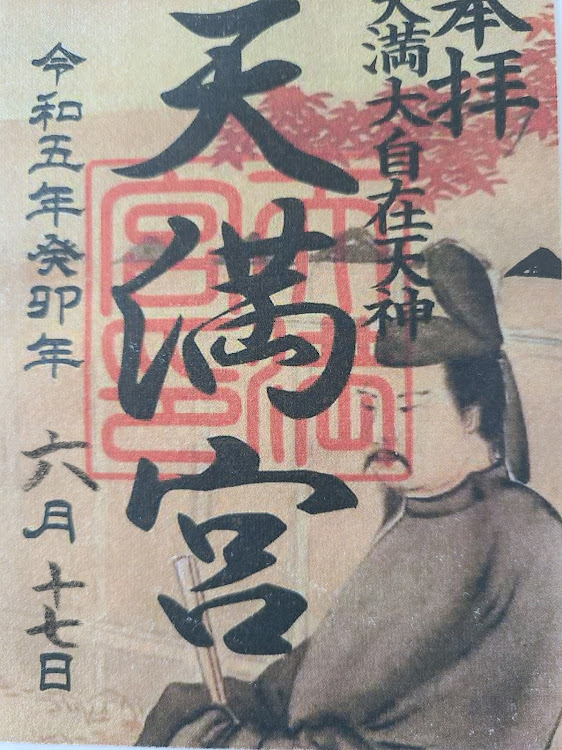 奉拝
天満大自在天神
天満宮
令和五年癸卯年 六月十七日
天満宮印